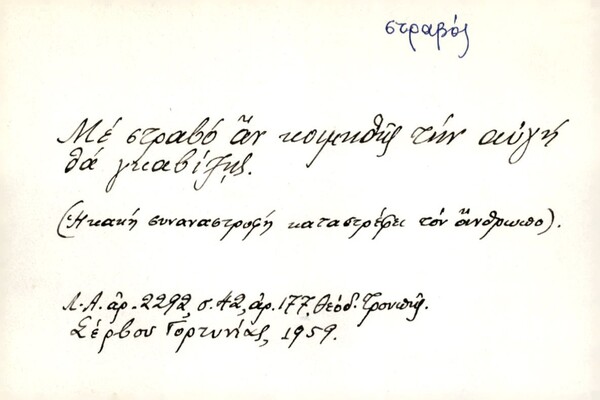 στραβός
Μέ στραβό ἄν κοιμηθῆς τήν αὐγή
θά γκαβίζῃς.
(Ἡ κακή συναναστροφή καταστρέφει τόν ἄνθρωπο).
Λ.Α. ἀρ. 2292, σ. 42, ἀρ. 177, Θεόδ. Τρουπῆς.
Σέρβου Γορτυνίας, 1959.